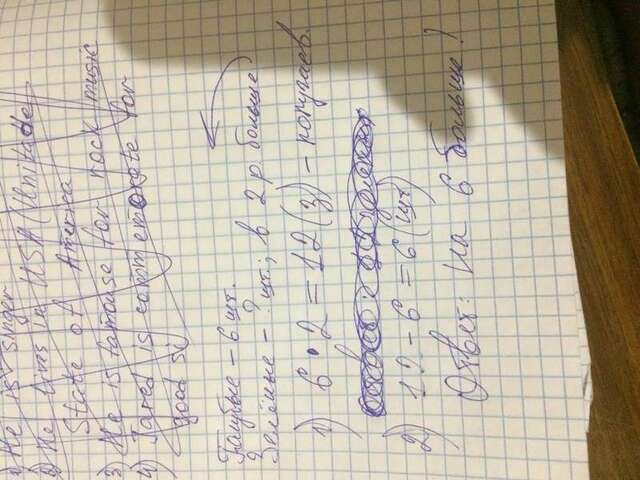 1) He is singer
2) He lives in USA (Unitade
State of America
3) He is famouse for rock music
4) Jared is commemorate for
good si
Голубые - 6 шт.
Зелёные - ? шт.; в 2 р. больше
1) 6 • 2 = 12 (з) - попугаев.
2) 12 - 6 = 6 (шт)
Ответ: на 6 больше!